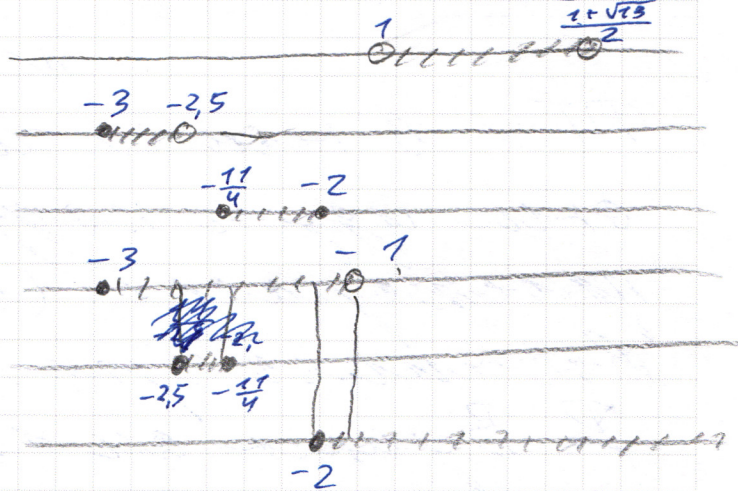 1 (1+√13)/2
-3 -2,5
-11/4 -2
-3 -1
-2,5 -11/4
-2